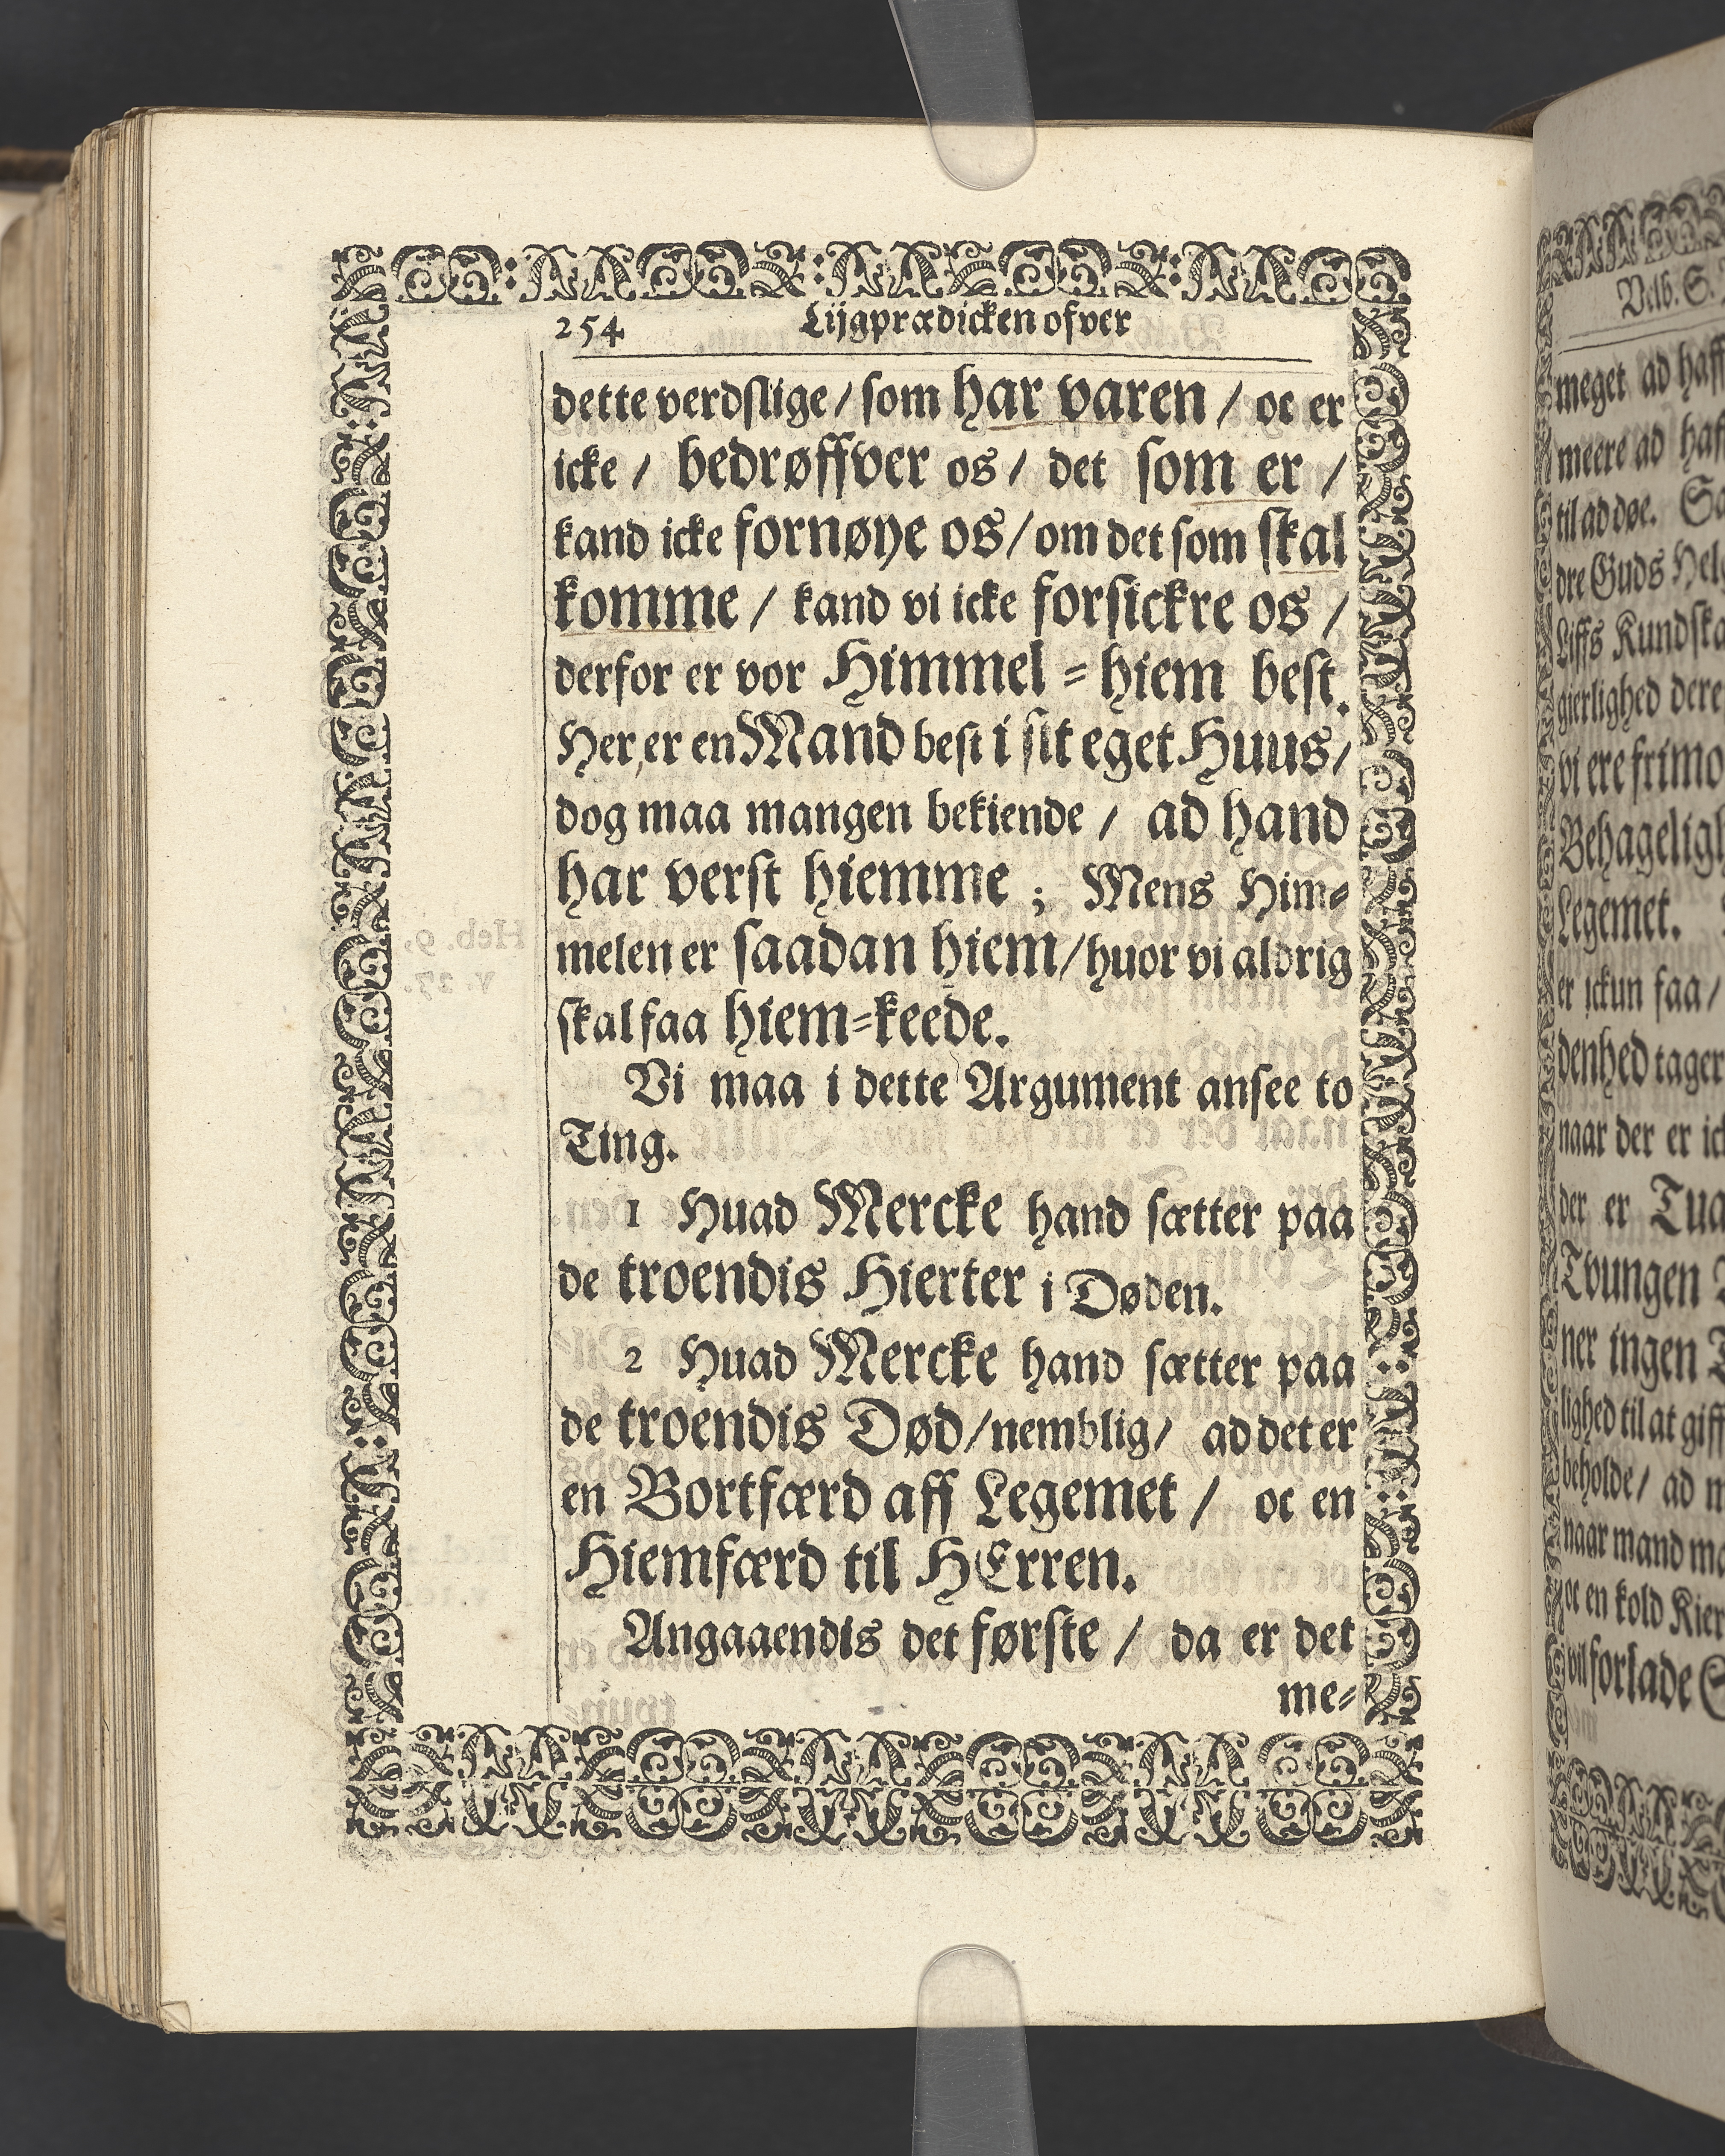 254 Lijgprædicken ofver
dette verdslige / som har varen / oc er
icke / bedrøffver os / det som er /
kand icke fornøye os / om det som skal
komme / kand vi icke forsickre os /
derfor er vor Himmel = hiem best.
Her, er en Mand best i sit eget Huus /
dog maa mangen bekiende / ad hand
har verst hiemme ; Mens Him=
melen er saadan hiem / huor vi aldrig
skal faa hiem=keede.
Vi maa i dette Argument ansee to
Ting.
1 Huad Mercke hand sætter paa
de troendis Hierter i Døden.
2 Huad Mercke hand sætter paa
de troendis Død / nemblig / ad det er
en Bortfærd aff Legemet / oc en
Hiemfærd til HErren.
Angaaendis det første / da er det
me=
Velb. S.
meget ad haff
meere ad haf
til ad døe. Sa
dre Guds Hel
Liffs Kundska
gierlighed dere
vi ere frimo
Behagelig
Legemet.
er ickun faa /
denhed tager
naar der er ick
der er Tua
Tvungen
ner ingen T
lighed til at giff
beholde / ad m
naar mand ma
oc en kold Kier
vil forlade S